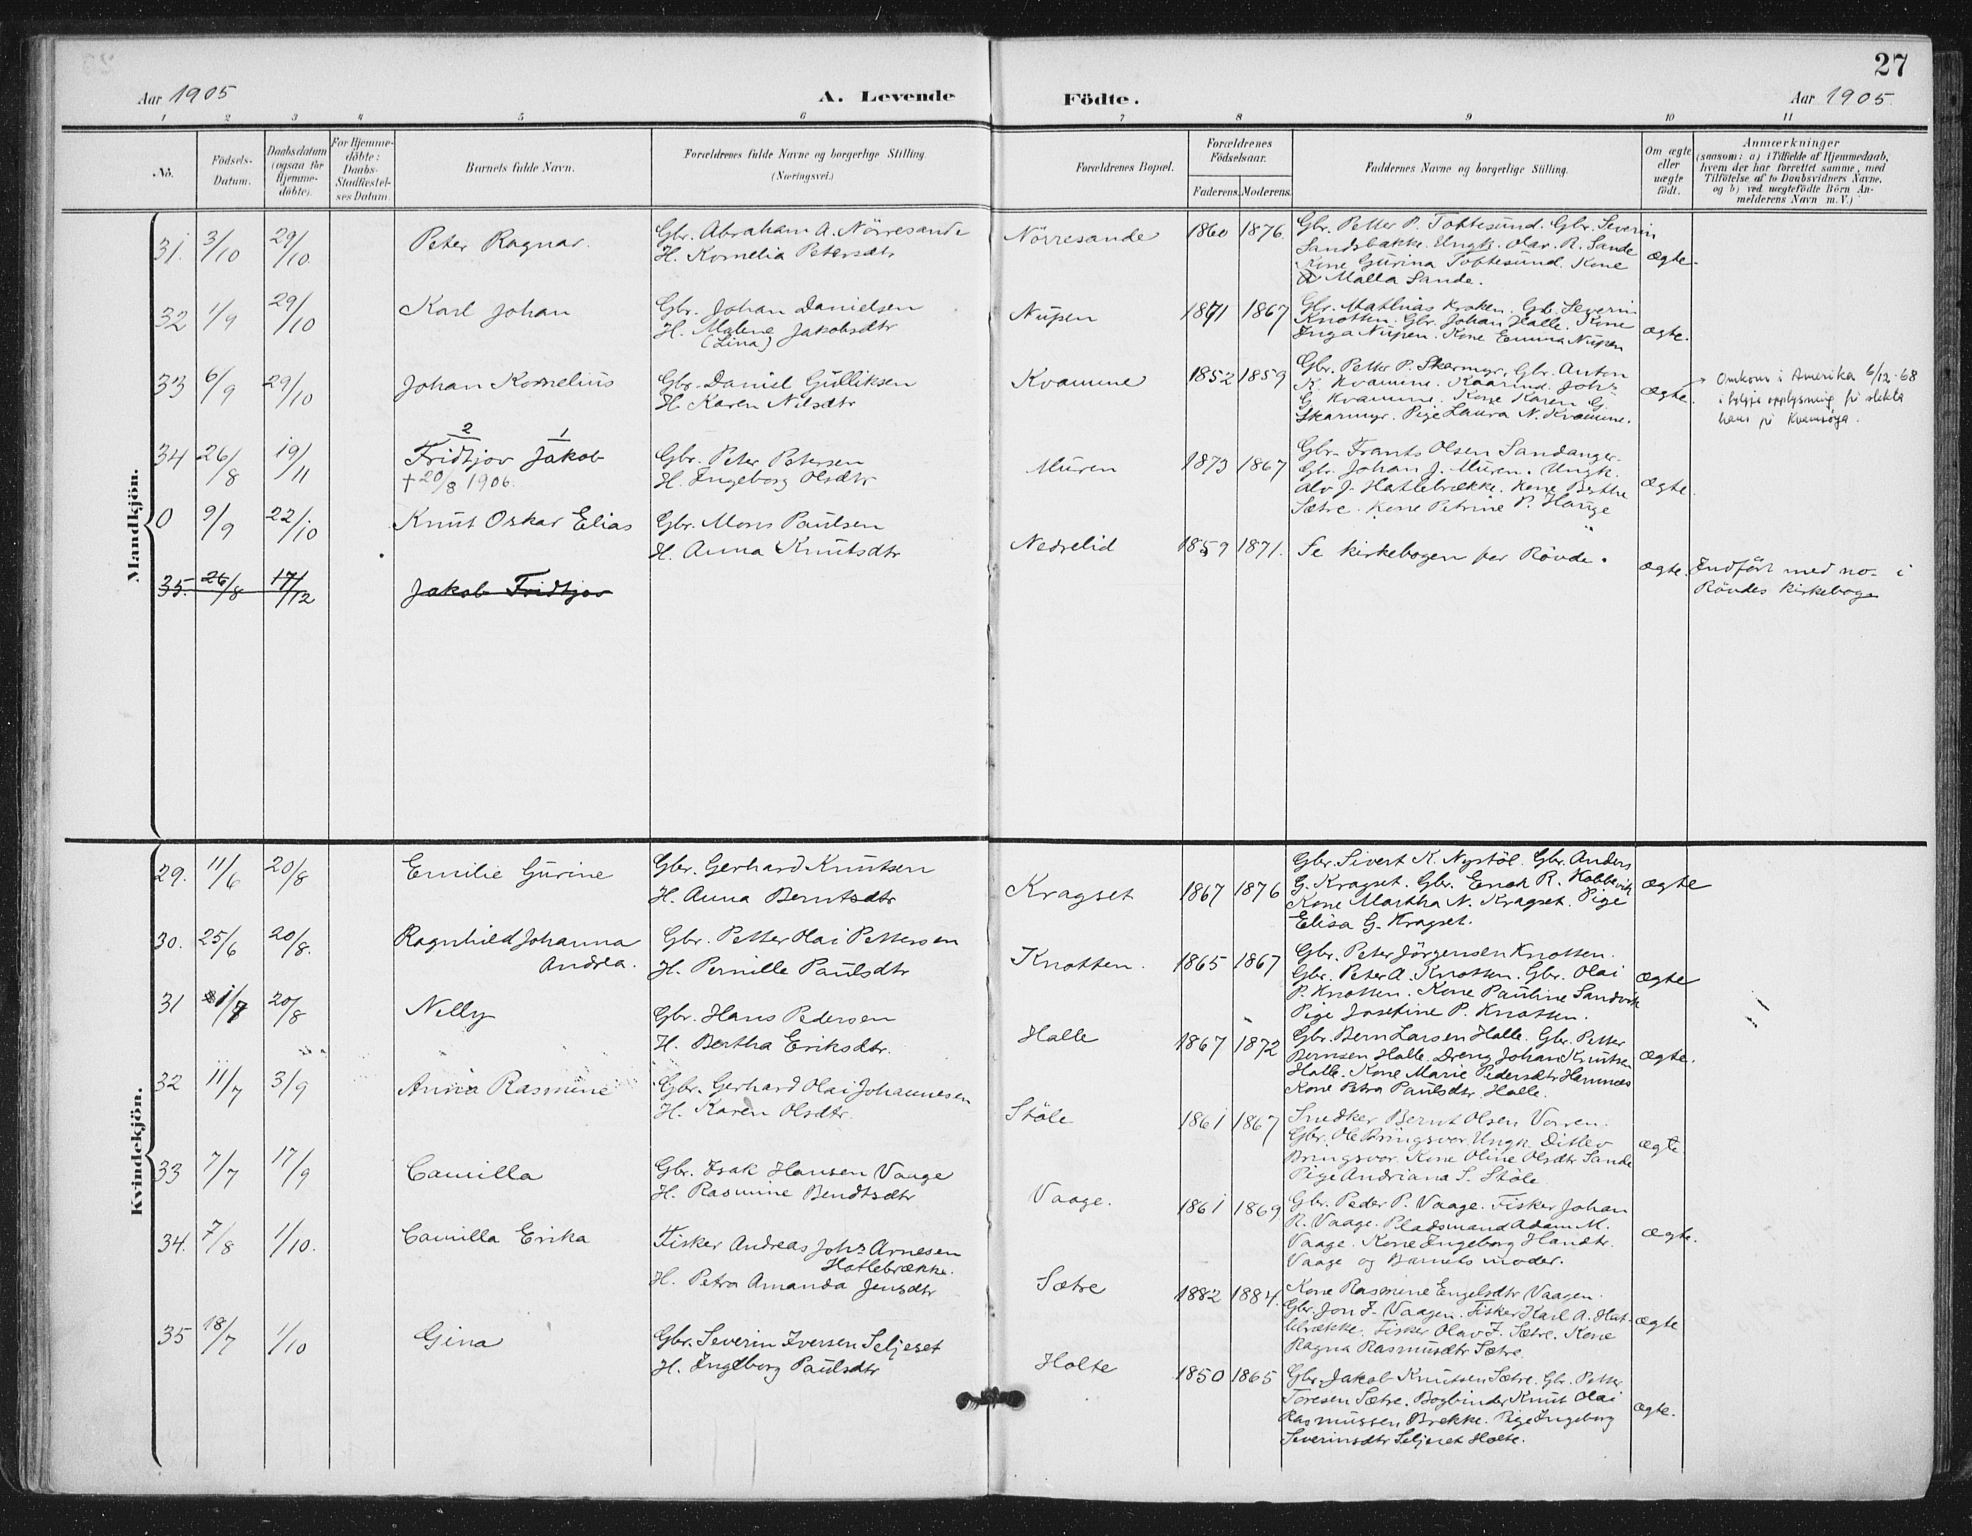 27
Aar 1905
A. Levende
Födte.
Aar 1905.
1 2 3 4 5 6 7 8 9 10 11
No.
Födsels-
Datum.
Daabsdatum
(ogsaa for
Hjemme-
döbte).
For Hjemme-
döbte:
Daabs-
Stadfæstel-
ses Datum.
Barnets fulde Navn.
Forældrenes fulde Navne og borgerlige Stilling
(Næringsvei.)
Forældrenes Bopæl.
Forældrenes
Födselsaar.
Faderens. Moderens.
Faddernes Navne og borgerlige Stilling.
Om ægte
eller
uægte
födt.
Anmærkninger
(saasom: a) i Tilfælde af Hjemmedaab,
hvem der har forrettet samme, med
Tilföielse af to Daabsvidners Navne,
og b) ved uægtefödte Börn An-
melderens Navn m. V.)
Mandkjön.
31. 3/10 29/10 Peter Ragnar.
Gbr. Abraham A. Nörresande
H. Kornelia Petersdtr
Nörresande 1860 1876.
Gbr. Petter P. Tobtesund. Gbr. Severin
Sandsbakke. Ungk. Olav. R. Sande
Kone Gurina Tobtesund. Kone
Malla Sande.
ægte.
32 1/9 29/10 Karl Johan
Gbr. Johan Danielsen
H. Malene Jakobsdtr
(Lina)
Nupen 1871 1867
Gbr. Mathias Kroken. Gbr. Severin
Knotten. Gbr. Johan Halle. Kone
Inga Nupen. Kone Emma Nupen
ægte.
33 6/9 29/10 Johan Kornelius
Gbr. Daniel Gulliksen
H. Karen Nilsdtr
Kvamme 1852 1859
Gbr. Petter P. Skarmyr. Gbr. Anton
K. Kvamme. Joh.s
G. Kvamme. Kone Karen G.
Skarmyr. Pige Laura N. Kvamme.
ægte.
Omkom i Amerika 6/12-68
i følgje opplysning frå slekta
hans på Kvamsøya.
34 26/8 19/11 2 1
Fridtjov Jakob
† 20/8 1906.
Gbr. Peter Petersen
H. Ingeborg Olsdtr
Muren 1873 1867
Gbr. Frants Olsen Sandanger
Gbr. Johan J. Muren. Ungk.
Alv J. Hatlebrække. Kone Berthe
Sætre. Kone Petrine P. Hauge
ægte.
0 9/9 22/10 Knut Oskar Elias
Gbr. Mons Paulsen
H. Anna Knutsdtr
Nedrelid 1859 1871.
Se kirkebogen for Rövde.
ægte.
Indfört med no- i
Rövdes kirkebog
35. 26/8 17/12 Jakob Fridtjov
Kvindekjön.
29. 11/6 20/8 Emilie Gurine
Gbr. Gerhard Knutsen
H. Anna Berntsdtr
Kragset 1867 1876
Gbr. Sivert K. Nystöl. Gbr. Anders
G. Kragset. Gbr. Enok R. Hobbevik
Kone Martha N. Kragset. Pige
Elisa G. Kragset.
ægte
30. 25/6 20/8. Ragnhild Johanna
Andrea.
Gbr. Petter Olai Pettersen
H. Pernille Paulsdtr
Knotten. 1865 1867
Gbr. Peter Jörgensen Knotten.
Gbr. Peter A. Knotten. Gbr. Olai
P. Knotten. Kone Pauline Sandvik
Pige Josefine P. Knotten.
ægte
31 1/7 20/8 Nelly
Gbr. Hans Pedersen
H. Bertha Eriksdtr.
Halle 1867 1872
Gbr. Bern Larsen Halle. Gbr. Petter
Bernsen Halle. Dreng Johan Knutsen
Halle. Kone Marie Pedersdtr Hamnes
Kone Petra Paulsdtr. Halle.
ægte.
32 11/7 3/9 Anna Rasmine
Gbr. Gerhard Olai Johannesen
H. Karen Olsdtr.
Stöle 1861 1867
Snedker Bernt Olsen Vorren.
Gbr. Ole Bringsvor. Ungk. Ditlev
Bringsvor. Kone Oline Olsdtr Sande
Pige Andriana S. Stöle
ægte
33 7/7 17/9 Camilla
Gbr. Isak Hansen Vaage
H. Rasmine Bendtsdtr
Vaage. 1861 1869
Gbr. Peder P. Vaage. Fisker Johan
R. Vaage. Pladsmand Adam M.
Vaage. Kone Ingeborg Hansdtr.
Vaage og Barnets moder.
ægte.
34. 7/8 1/10. Camilla Erika
Fisker Andreas Joh.s Arnesen
Hatlebrække.
H. Petra Amanda Jensdtr
Sætre 1882 1884.
Kone Rasmine Engelsdtr Vaagen.
Gbr. Jon J. Vaagen. Fisker Karl A. Hat-
lebrække. Fisker Olav J. Sætre. Kone
Ragna Rasmusdtr Sætre.
ægte
35 18/7 1/10 Gina
Gbr. Severin Iversen Seljeset
H. Ingeborg Paulsdtr
Holte 1850 1865
Gbr. Jakob Knutsen Sætre. Gbr. Petter
Toresen Sætre. Bogbinder Knut Olai
Rasmussen Brekke. Pige Ingeborg
Severinsdtr Seljeset Holte.
ægte.